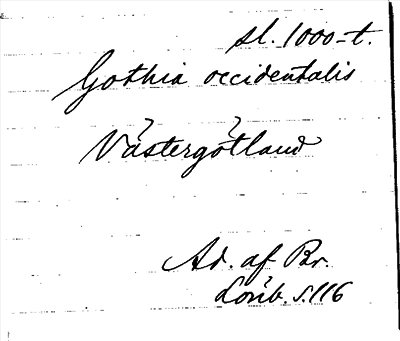 sl. 1000-t.
Gothia occidentalis
Västergötland
Ad. af Br.
s. 116